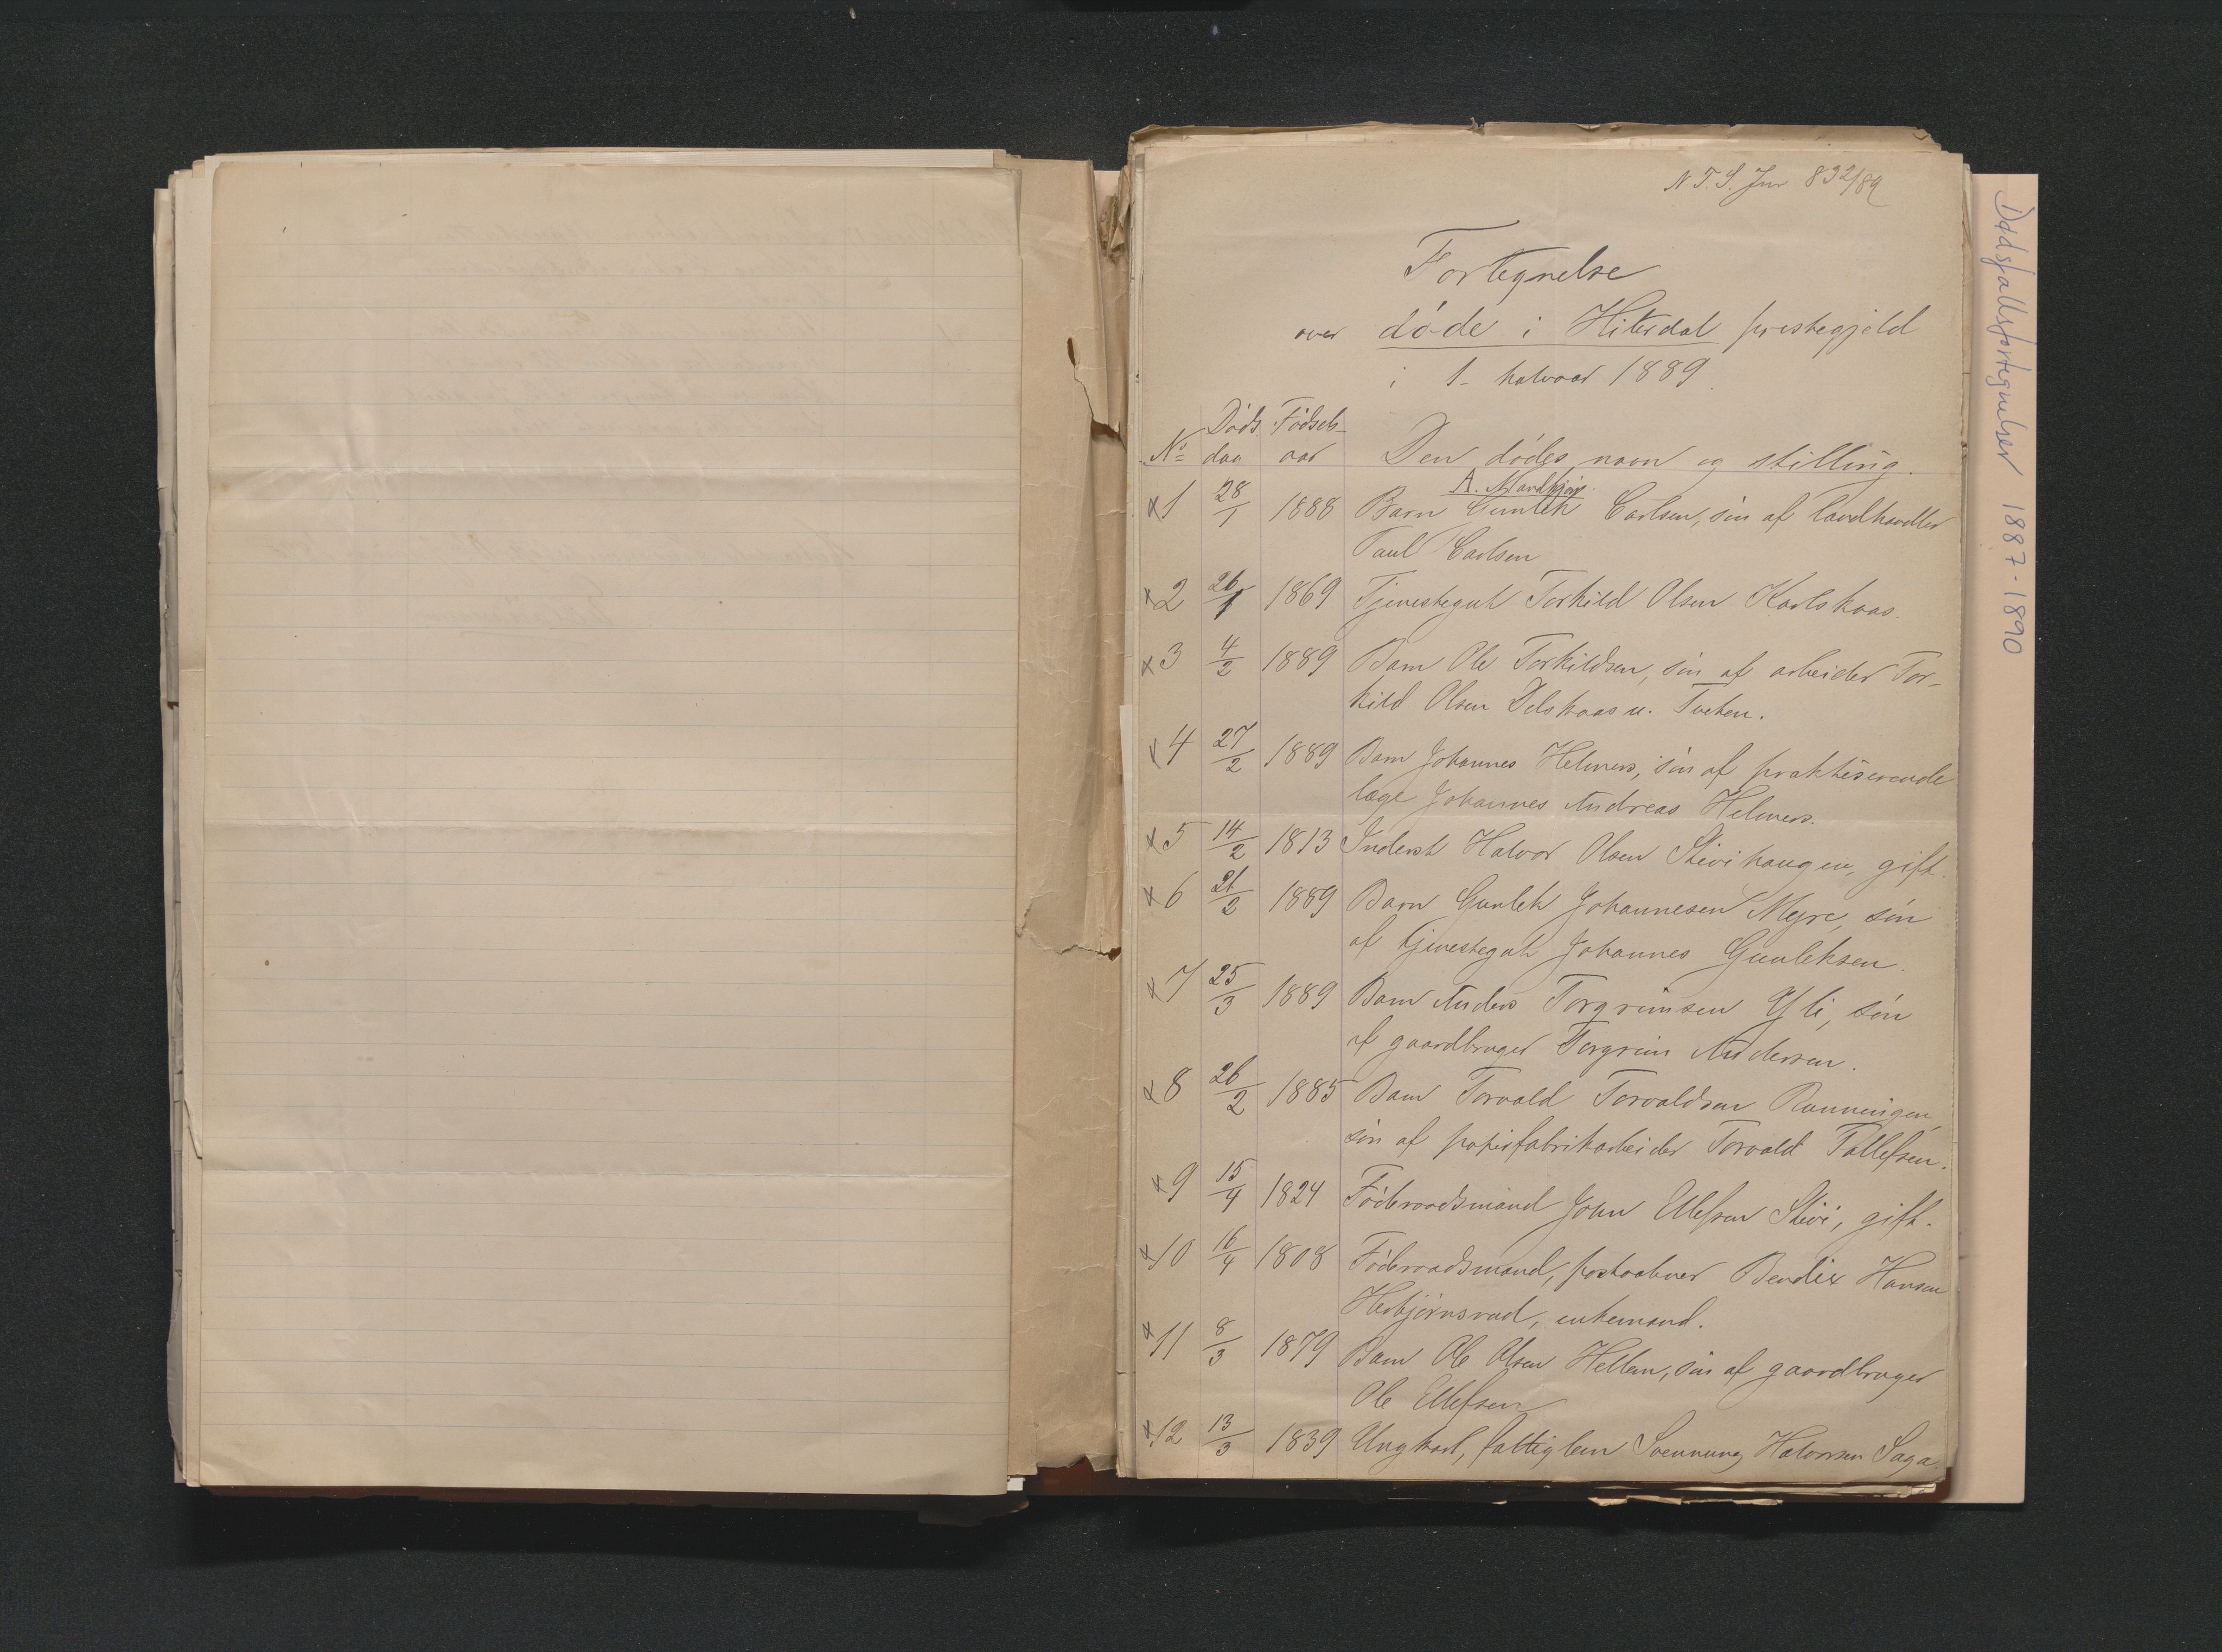 N T. S. Jur 832/89
Fortegnelse
over døde i Hiterdal prestegjeld
i 1. halvaar 1889.
Døds Fødsels-
No dag aar Den dødes navn og stilling.
A. Mandkjøn.
x1 28/1 1888 Barn Gunlek Carlsen, søn af landhandler
Paul Carlsen
x2 26/1 1869 Tjenestegut Torkild Olsen Karlskaas.
x3 4/2 1889 Barn Ole Torkildsen, søn af arbeider Tor-
kild Olsen Delskaas u. Tveten.
x4 27/2 1889 Barn Johannes Helmers, søn af praktiserende
læge Johannes Andreas Helmers.
x5 14/2 1813 Inderst Halvor Olsen Skivihaugen, gift.
x6 21/2 1889 Barn Gunlek Johannesen Myre, søn
af tjenestegut Johannes Gunleksen.
x7 25/3 1889 Barn Anders Torgrimsen Yli, søn
af gaardbruger Torgrim Andersen.
x8 26/2 1885 Barn Torvald Torvaldsen Rønningen,
søn af papirfabrikarbeider Torvald Tollefsen.
x9 15/4 1824 Føderaadsmand John Ellefsen Skivi, gift.
x10 16/4 1808 Føderaadsmand, postaabner Bendix Hansen
Herbjørnsrud, enkemand.
x11 8/3 1879 Barn Ole Olsen Hellem, søn af gaardbruger
Ole Ellefsen
x12 13/3 1839 Ungkarl, fattiglem Svennung Halvorsen Saga.
Dødsfallsfortegnelser 1887-1890